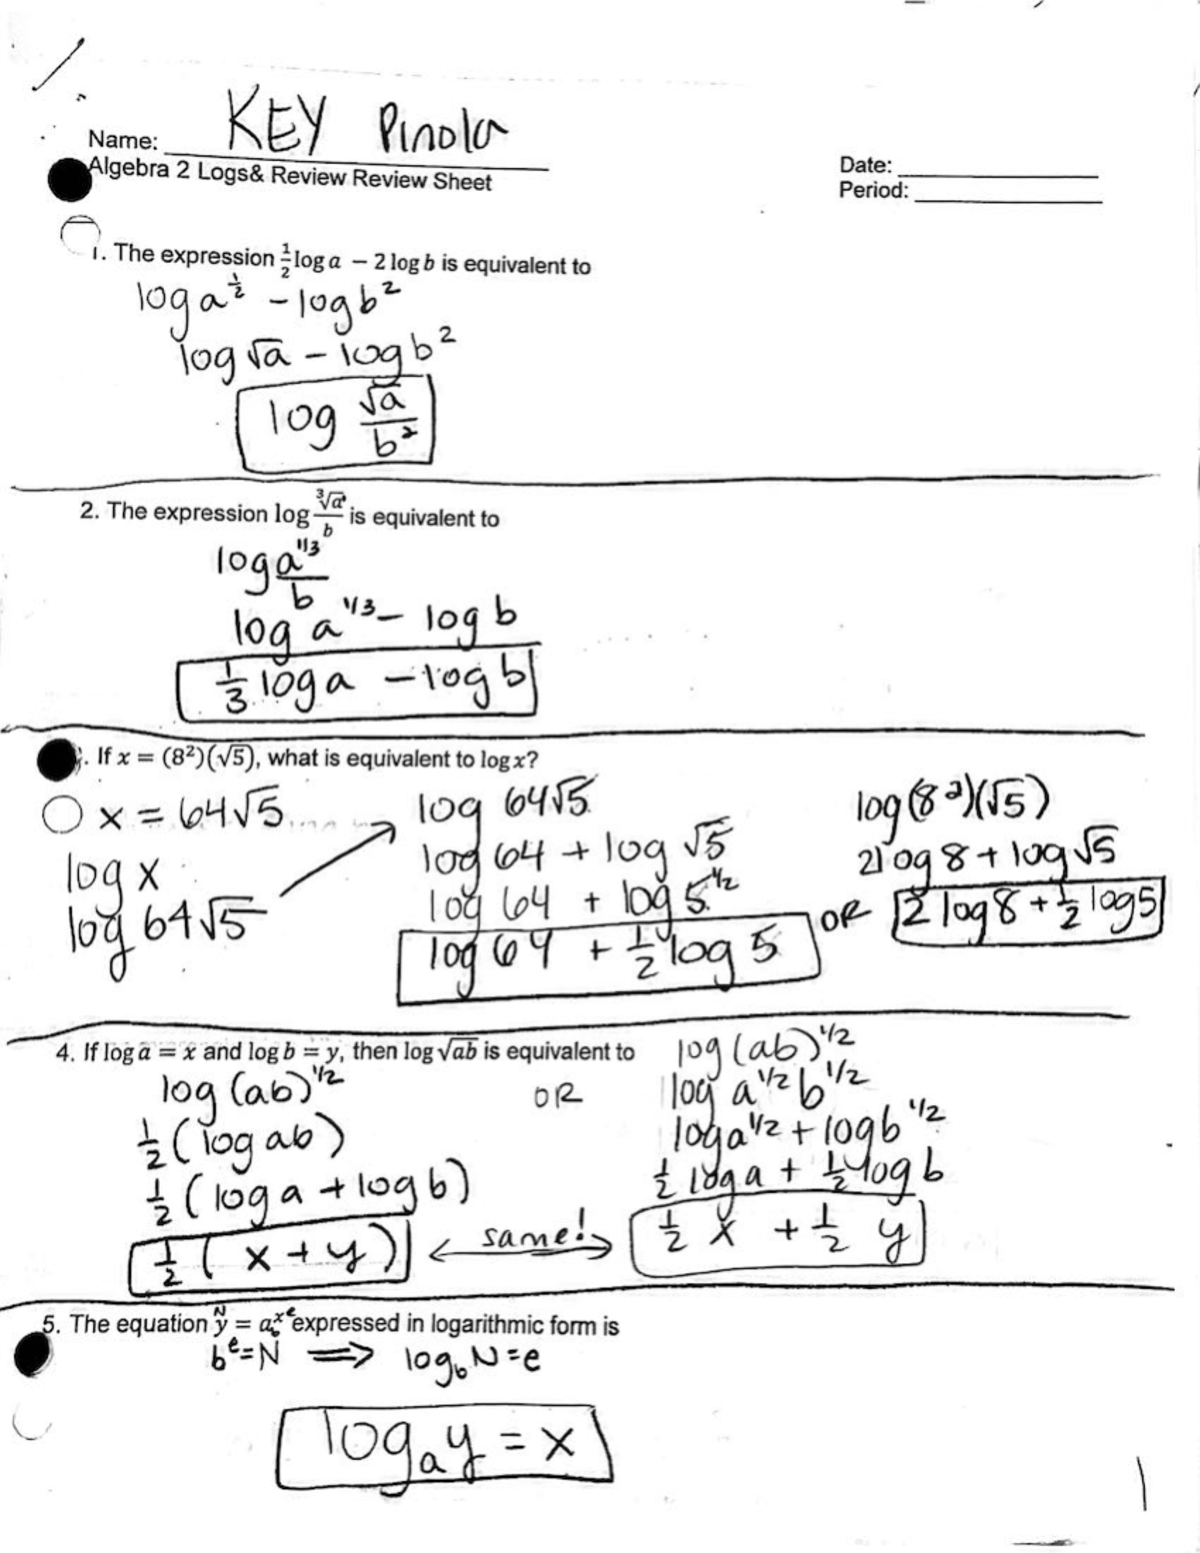 Name: KEY Pinola
Algebra 2 Logs& Review Review Sheet
Date:
Period:
1. The expression ½ log a − 2 log b is equivalent to
log a^½ − log b²
log √a − log b²
log √a/b²
2. The expression log ∛a/b is equivalent to
log a^1/3/b
log a^1/3 − log b
1/3 log a − log b
. If x = (8²)(√5), what is equivalent to log x?
x = 64√5
log x
log 64√5
log 64√5
log 64 + log √5
log 64 + log 5^1/2
log 64 + ½ log 5
OR
log(8²)(√5)
2log 8 + log √5
2 log 8 + ½ log 5
4. If log a = x and log b = y, then log √ab is equivalent to
log (ab)^1/2
½ (log ab)
½ (log a + log b)
½ ( x + y )
OR
same!
log (ab)^1/2
log a^1/2 b^1/2
log a^1/2 + log b^1/2
½ log a + ½ log b
½ x + ½ y
5. The equation y = aˣ expressed in logarithmic form is
N b e
b^e = N ⟹ log_b N = e
log_a y = x
1